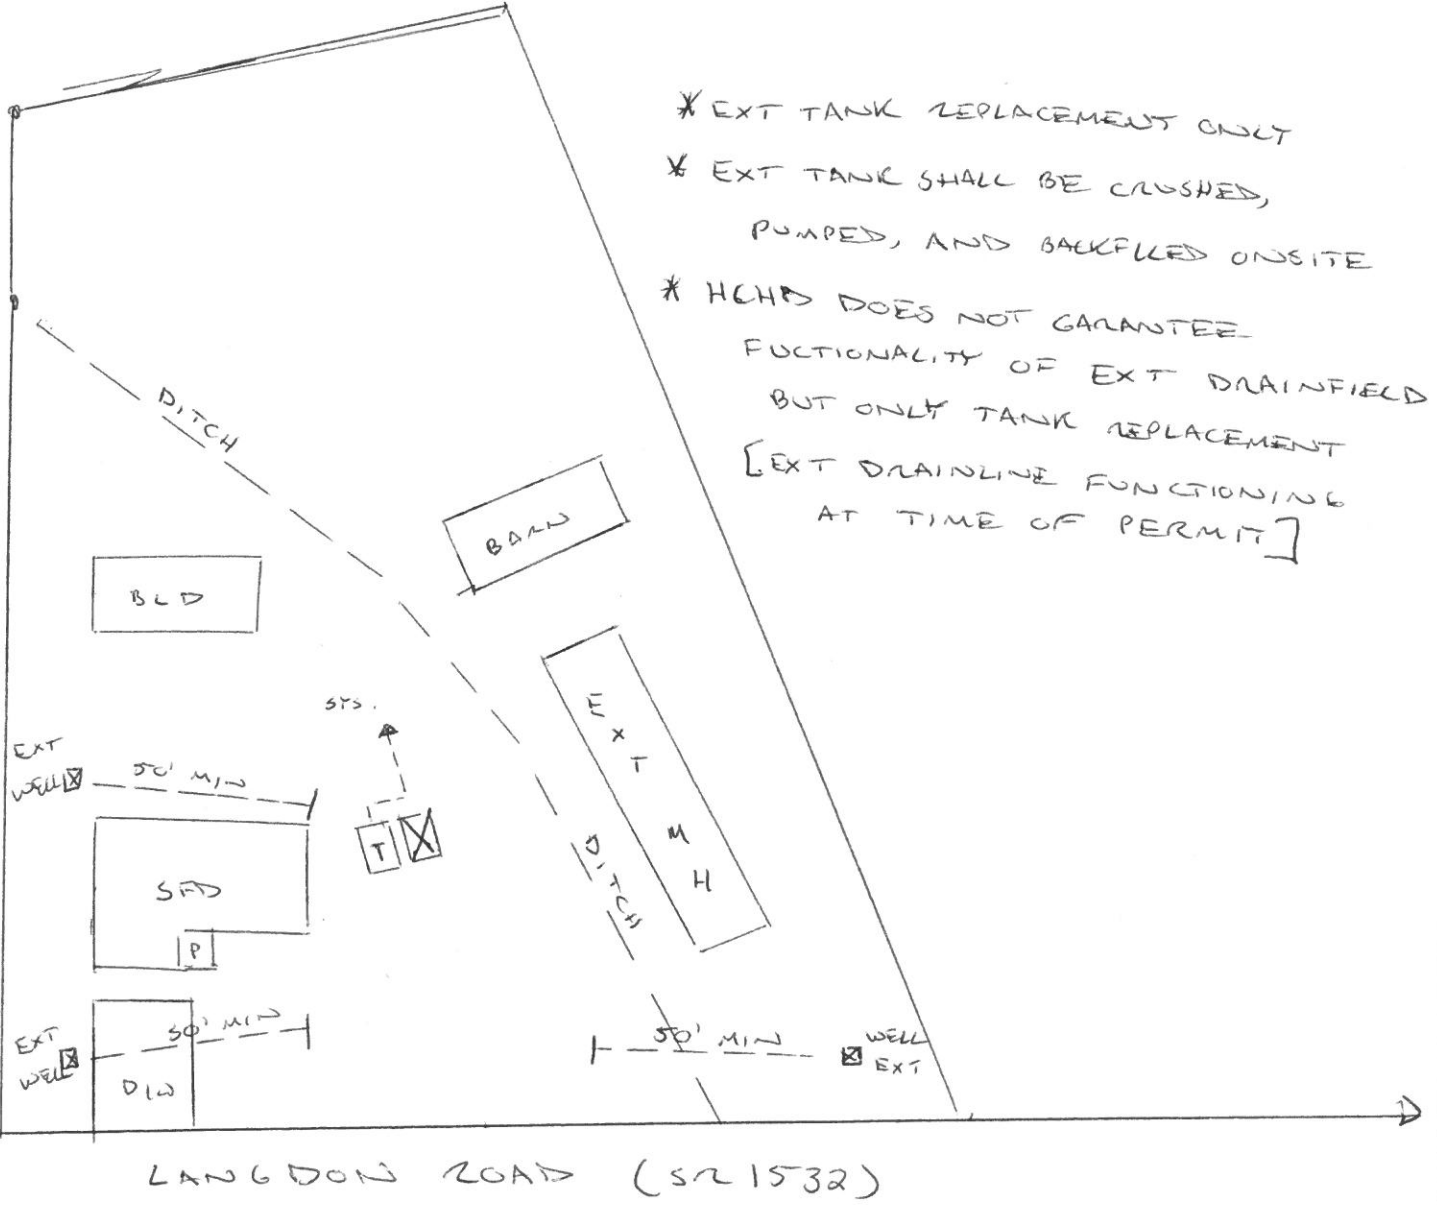 * EXT TANK REPLACEMENT ONLY
* EXT TANK SHALL BE CRUSHED,
PUMPED, AND BACKFLLED ONSITE
* HCHD DOES NOT GARANTEE
FUCTIONALITY OF EXT DRAINFIELD
BUT ONLY TANK REPLACEMENT
[EXT DRAINLINE FUNCTIONING
AT TIME OF PERMIT]
DITCH
BARN
BLD
EXT MH
SYS.
EXT
WELL
50' MIN
T
SFD
P
DITCH
EXT
WELL
50' MIN
D/W
50' MIN
WELL
EXT
LANGDON ROAD (SR 1532)